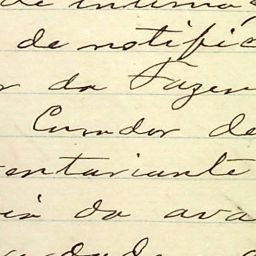 de intima
de notific
r da Fazen
Curador de
entariante
ia do ava